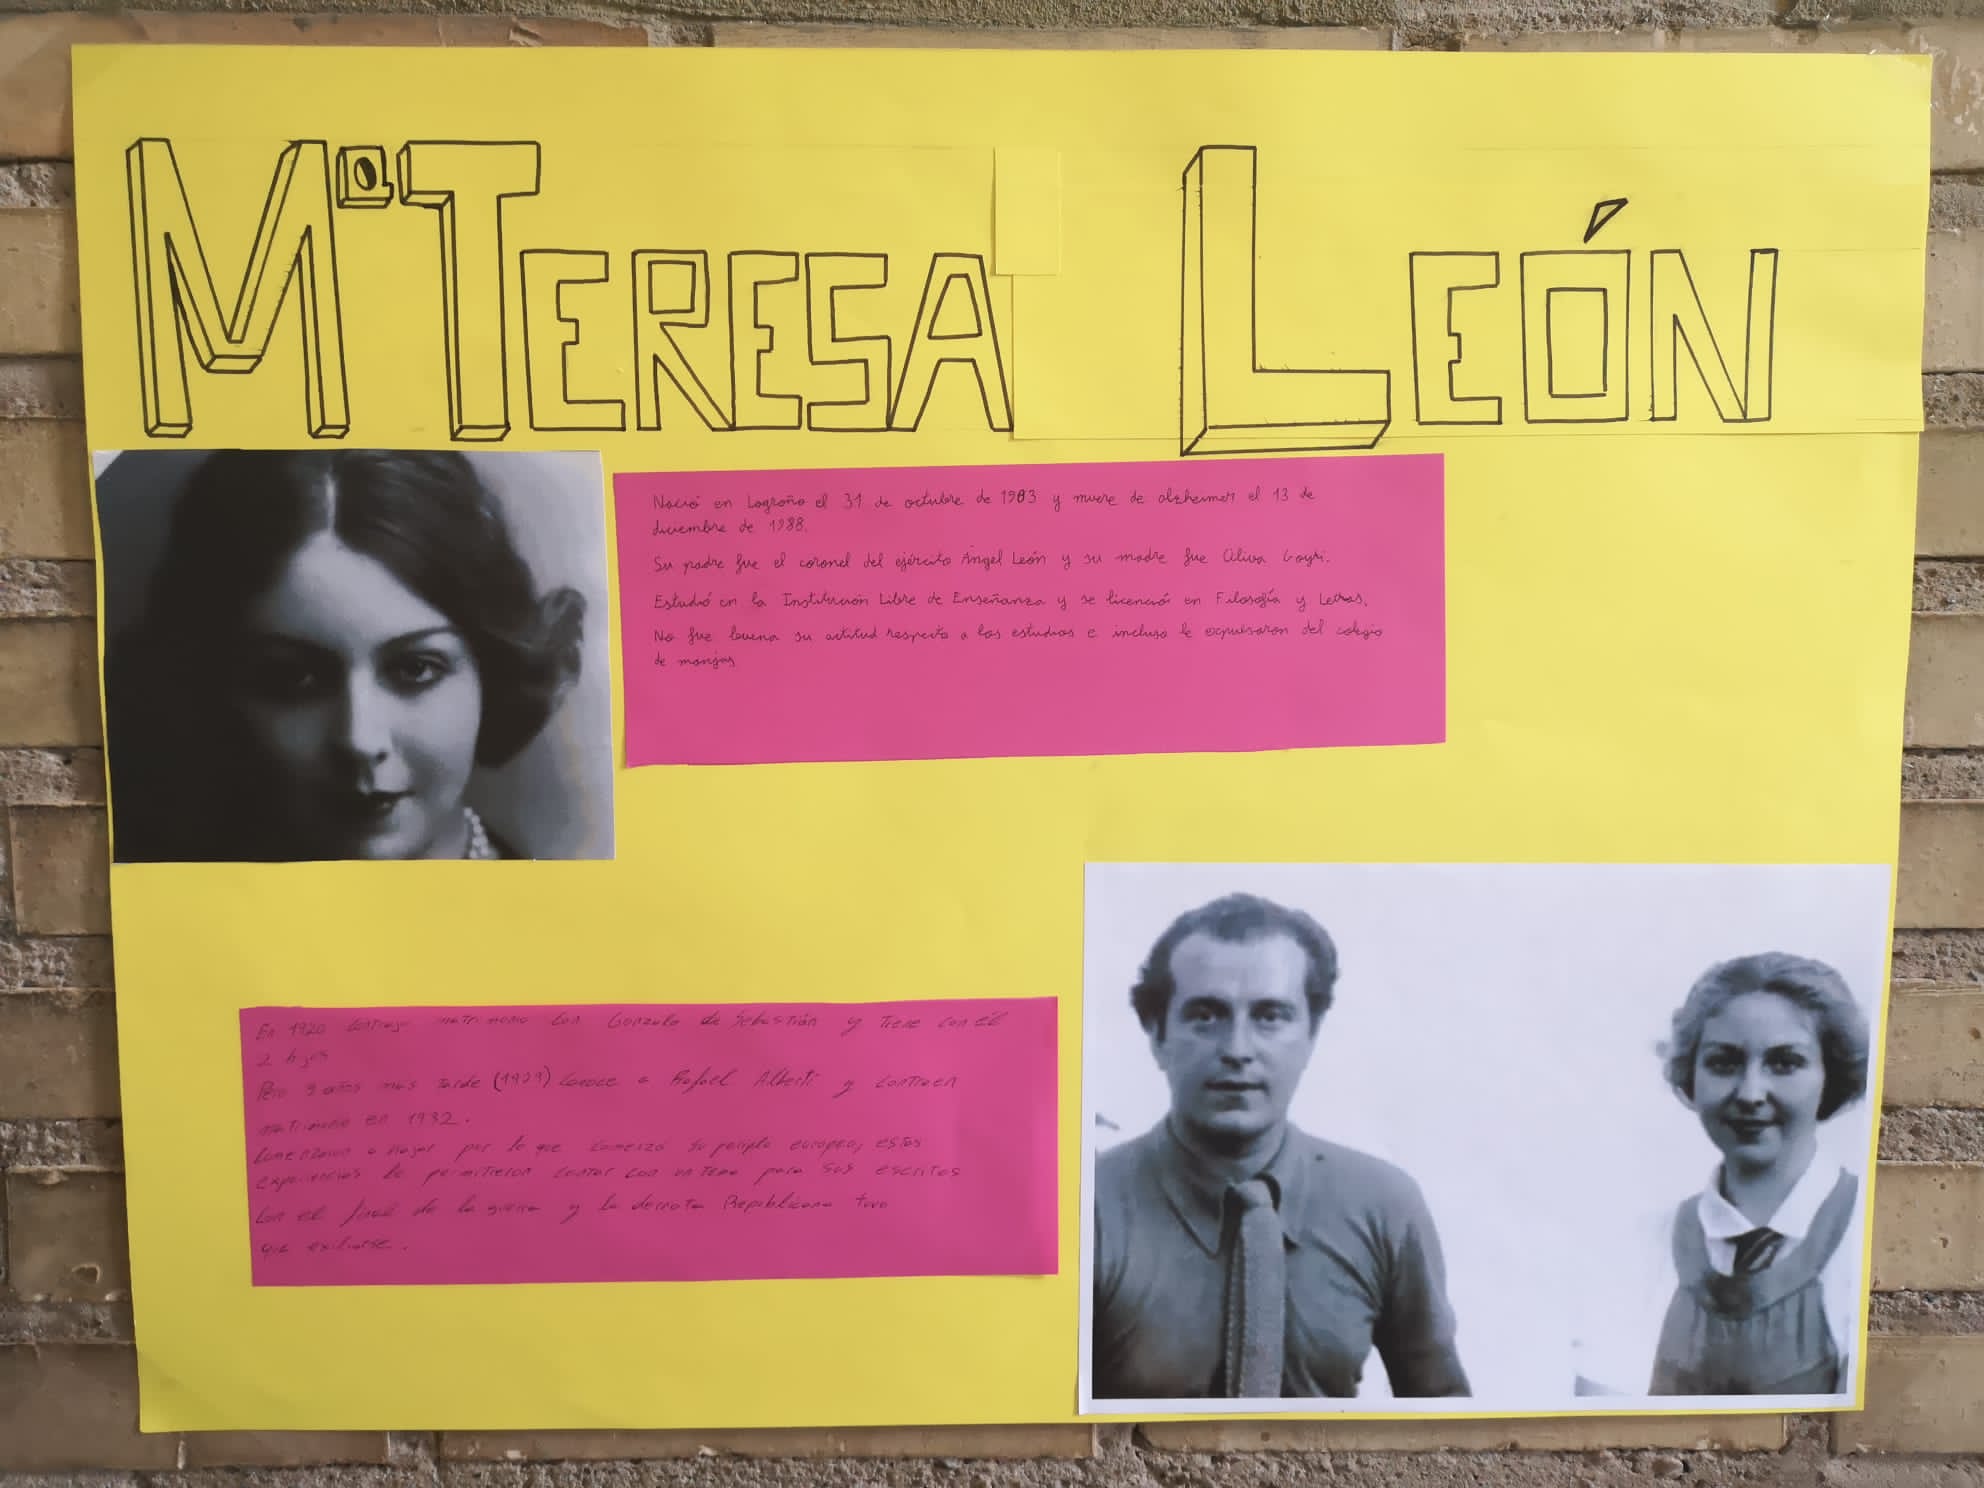 Mª TERESA LEÓN
Nació en Logroño el 31 de octubre de 1903 y muere de alzheimer el 13 de
diciembre de 1988.
Su padre fue el coronel del ejército Ángel León y su madre fue Oliva Goyri.
Estudió en la Institución Libre de Enseñanza y se licenció en Filosofía y Letras.
No fue buena su actitud respecto a los estudios e incluso le expulsaron del colegio
de monjas
En 1920 contrajo matrimonio con Gonzalo de Sebastián y tiene con él
2 hijos
Pero 9 años más tarde (1929) conoce a Rafael Alberti y contraen
matrimonio en 1932.
Comenzaron a viajar por lo que comenzó su periplo europeo, estas
experiencias le permitieron contar con un tema para sus escritos
Con el final de la guerra y la derrota Republicana tuvo
que exiliarse.